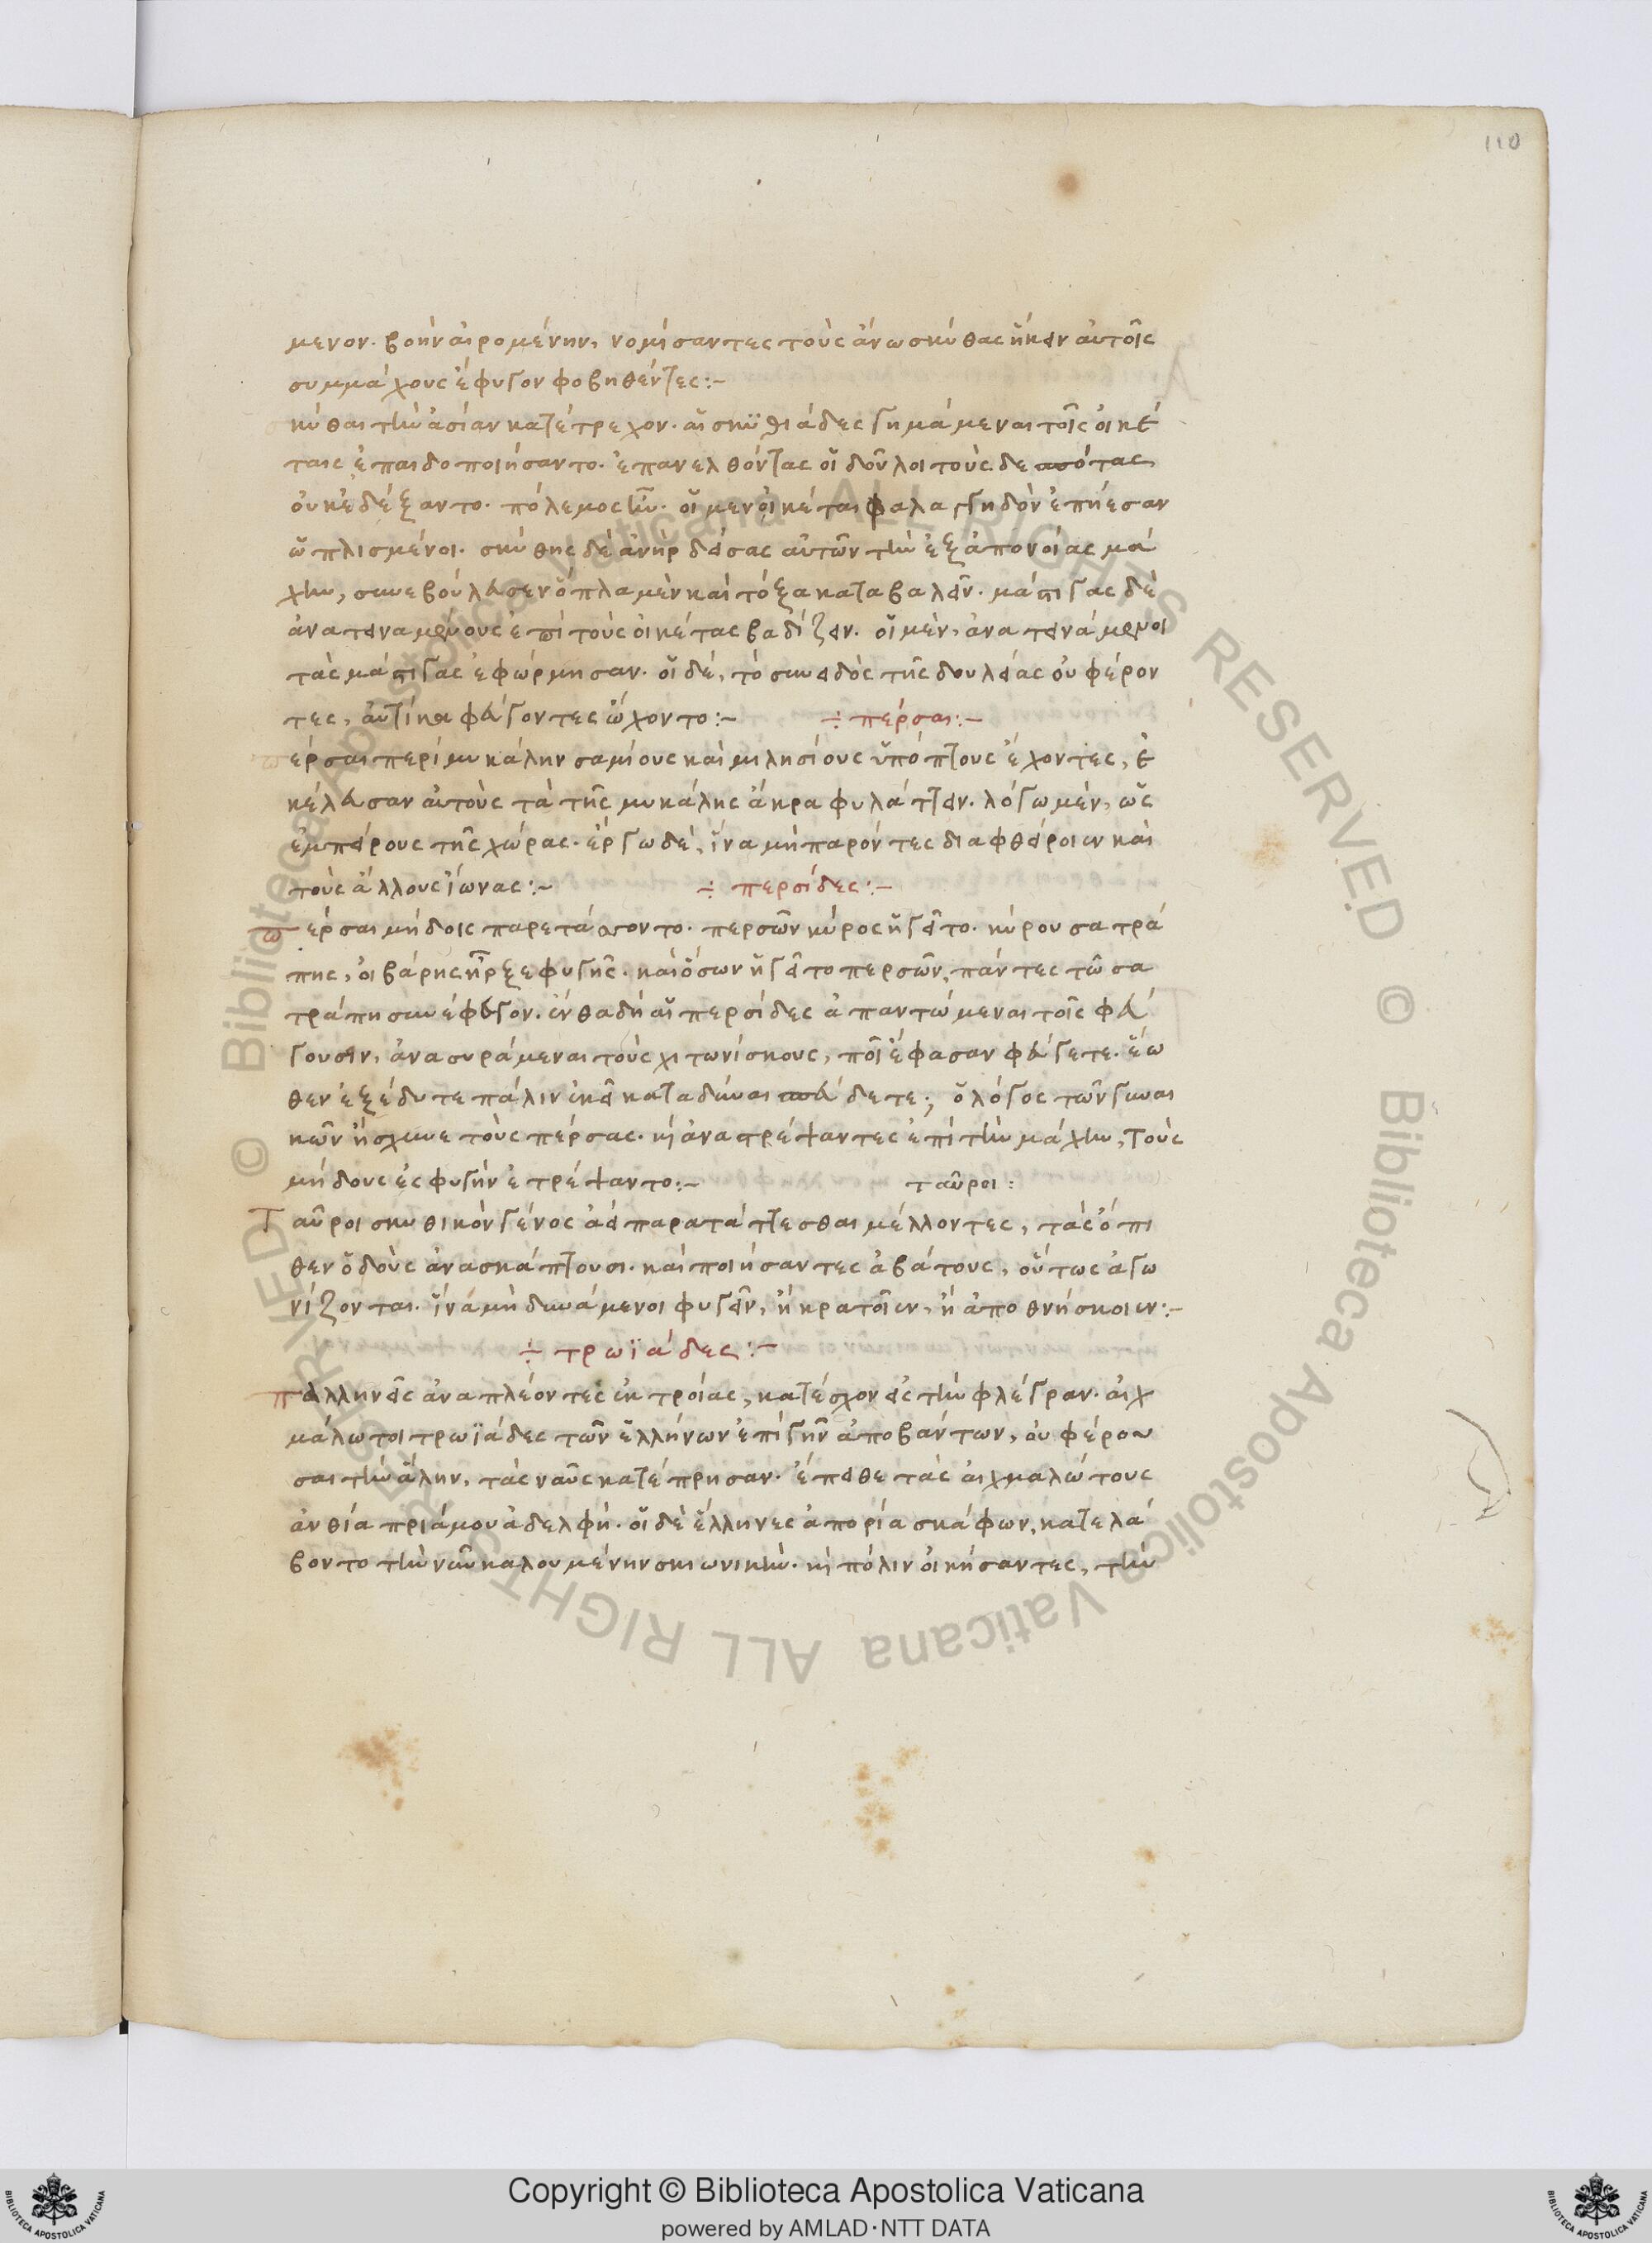 110
μενον. βοὴν αἰρομένην, νομήσαντες τοὺς ἄνω σκύθας ἥκειν αὐτοῖς
συμμάχους ἔφυγον φοβηθέντες:~
σκύθαι τὴν ἀσίαν κατέτρεχον. αἱ σκυϊθιάδες γημάμεναι τοῖς οἰκέ
ταις ἐπαιδοποιήσαντο. ἐπανελθόντας οἱ δοῦλοι τοὺς δεσπότας
οὐκ ἐδέξαντο. πόλεμος ἦν. οἱ μὲν οἰκέται φαλαγγηδὸν ἐπήεσαν
ὡπλισμένοι. σκύθης δὲ ἀνὴρ δείσας αὐτῶν τὴν ἐξ ἀπονοίας μά
χην, συνεβούλευσεν ὅπλα μὲν καὶ τόξα καταβαλεῖν. μάστιγας δὲ
ἀνατειναμένους ἐπὶ τοὺς οἰκέτας βαδίζειν. οἱ μὲν, ἀνατεινάμενοι
τὰς μάστιγας ἐφώρμησαν. οἱ δὲ, τὸ συνειδὸς τῆς δουλείας οὐ φέρον
τες, αὐτίκα φεύγοντες ᾤχοντο:~ ÷ πέρσαι:~
πέρσαι περὶ μυκάλην σαμίους καὶ μιλησίους ὑπόπτους ἔχοντες, ἐ
κέλευσαν αὐτοὺς τὰ τῆς μυκάλης ἄκρα φυλάττειν. λόγω μὲν, ὡς
ἐμπείρους τῆς χώρας. ἔργω δὲ, ἵνα μὴ παρόντες διαφθείροιεν καὶ
τοὺς ἄλλους ἴωνας:~ ÷ περσίδες:~
πέρσαι μήδοις παρετάσσοντο. περσῶν κύρος ἡγεῖτο. κύρου σατρά
πης, οἰβάρης ἦρξε φυγῆς. καὶ ὅσων ἡγεῖτο περσῶν, πάντες τῶ σα
τράπη συνέφευγον. ἔνθα δὴ αἱ περσίδες ἀπαντώμεναι τοῖς φεύ
γουσιν, ἀνασυράμεναι τοὺς χιτωνίσκους, ποῖ ἔφασαν φεύγετε. ἕω
θεν ἐξέδυτε πάλιν ἐκεῖ καταδῦναι σπεύδετε; ὁ λόγος τῶν γυναι
κῶν ἤσχυνε τοὺς πέρσας. καὶ ἀναστρέψαντες ἐπὶ τὴν μάχην, τοὺς
μήδους ἐς φυγὴν ἐτρέψαντο:~ ταῦροι:
Ταῦροι σκυθικὸν γένος ἀεὶ παρατάττεσθαι μέλλοντες, τὰς ὄπι
θεν ὁδοὺς ἀνασκάπτουσι. καὶ ποιήσαντες ἀβάτους, οὕτως ἀγω
νίζονται. ἵνα μὴ δυνάμενοι φυγεῖν, ἢ κρατοῖεν, ἢ ἀποθνήσκοιεν:~
÷ τρωϊάδες:~
πελληνεῖς ἀναπλέοντες ἐκ τροίας, κατέσχον εἰς τὴν φλέγραν. αἰχ
μάλωτοι τρωϊάδες τῶν ἑλλήνων ἐπὶ γῆν ἀποβάντων, οὐ φέρου
σαι τὴν ἄλην, τὰς ναῦς κατέπρησαν. ἔπειθε τὰς αἰχμαλώτους
ἀνθία πριάμου ἀδελφή. οἱ δὲ ἕλληνες ἀπορία σκάφων, κατελά
βοντο τὴν νῦν καλουμένην σκιωνικὴν. καὶ πόλιν οἰκήσαντες, τὴν
© Biblioteca Apostolica Vaticana ALL RIGHTS RESERVED © Biblioteca Apostolica Vaticana ALL RIGHTS RESERVED
Copyright © Biblioteca Apostolica Vaticana
powered by AMLAD·NTT DATA
BIBLIOTECA APOSTOLICA VATICANA
BIBLIOTECA APOSTOLICA VATICANA